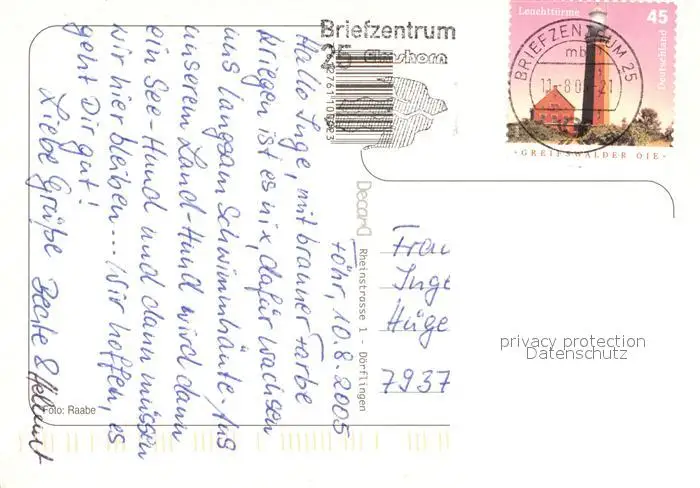 Briefzentrum
25 Elmshorn
Leuchttürme 45
Deutschland
BRIEFZENTRUM 25
mb
GREIFSWALDER OIE
Föhr, 10.8.2005
Hallo Inge, mit brauner Farbe
kriegen ist es nix, dafür wachsen
uns langsam Schwimmhäute. Aus
unserem Land-Hund wird dann
ein See-Hund und dann müssen
wir hier bleiben... Wir hoffen, es
geht Dir gut!
Liebe Grüße Beate & Hellmut
Decard Rheinstrasse 1 - Dörflingen
Frau
Inge
Hüge
7937
privacy protection
Datenschutz
Foto: Raabe